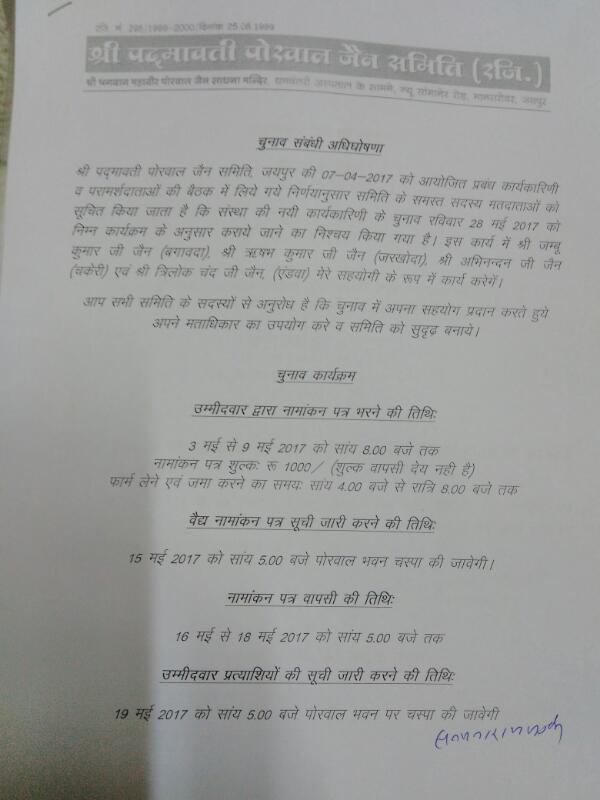 रजि. नं. 295/1999-2000/दिनांक 25.08.1999
श्री पद्मावती पोरवाल जैन समिति (रजि.)
श्री भगवान महावीर पोरवाल जैन साधना मन्दिर, धामवंतरी अस्पताल के सामने, न्यू सांगानेर रोड, मानसरोवर, जयपुर
चुनाव संबंधी अधिघोषणा
श्री पद्मावती पोरवाल जैन समिति, जयपुर की 07-04-2017 को आयोजित प्रबंध कार्यकारिणी
व परामर्शदाताओं की बैठक में लिये गये निर्णयानुसार समिति के समस्त सदस्य मतदाताओं को
सूचित किया जाता है कि संस्था की नयी कार्यकारिणी के चुनाव रविवार 28 मई 2017 को
निम्न कार्यक्रम के अनुसार कराये जाने का निश्चय किया गया है। इस कार्य में श्री जम्बू
कुमार जी जैन (बगावदा), श्री ऋषभ कुमार जी जैन (जरखोदा), श्री अभिनन्दन जी जैन
(चकेरी) एवं श्री त्रिलोक चंद जी जैन, (एंडवा) मेरे सहयोगी के रूप में कार्य करेगें।
आप सभी समिति के सदस्यों से अनुरोध है कि चुनाव में अपना सहयोग प्रदान करते हुये
अपने मताधिकार का उपयोग करे व समिति को सुदृढ़ बनाये।
चुनाव कार्यक्रम
उम्मीदवार द्वारा नामांकन पत्र भरने की तिथिः
3 मई से 9 मई 2017 को सांय 8.00 बजे तक
नामांकन पत्र शुल्कः रू 1000/ (शुल्क वापसी देय नही है)
फार्म लेने एवं जमा करने का समयः सांय 4.00 बजे से रात्रि 8.00 बजे तक
वैद्य नामांकन पत्र सूची जारी करने की तिथिः
15 मई 2017 को सांय 5.00 बजे पोरवाल भवन चस्पा की जावेगी।
नामांकन पत्र वापसी की तिथिः
16 मई से 18 मई 2017 को सांय 5.00 बजे तक
उम्मीदवार प्रत्याशियों की सूची जारी करने की तिथिः
19 मई 2017 को सांय 5.00 बजे पोरवाल भवन पर चस्पा की जावेगी